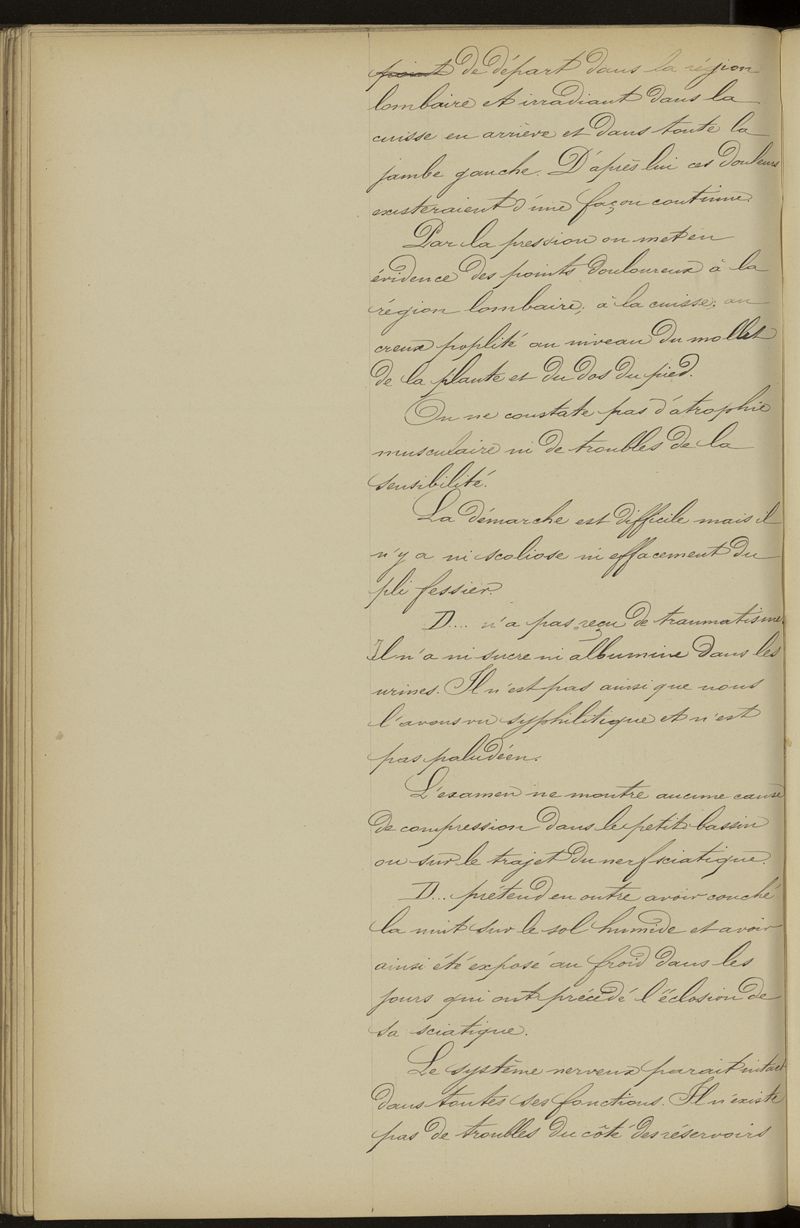 point de départ dans la région
lombaire et irradiant dans la
cuisse en arrière et dans toute la
jambe gauche. D'après lui ces douleurs
existeraient d'une façon continue.
Par la pression on met en
évidence des points douloureux à la
région lombaire; à la cuisse; au
creux poplité au niveau du mollet
de la plante et du dos du pied.
On ne constate pas d'atrophie
musculaire ni de troubles de la
sensibilité.
La démarche est difficile mais il
n'y a ni scoliose ni effacement du
pli fessier.
D.... n'a pas reçu de traumatisme.
Il n'a ni sucre ni albumine dans les
urines. Il n'est pas ainsi que nous
l'avons vu syphilitique et n'est
pas paludéen.
L'examen ne montre aucune cause
de compression dans le petit bassin
ou sur le trajet du nerf sciatique.
D... prétend en outre avoir couché
la nuit sur le sol humide et avoir
ainsi été exposé au froid dans les
jours qui ont précédé l'éclosion de
sa sciatique.
Le système nerveux parait intact
dans toutes ses fonctions. Il n'existe
pas de troubles du côté des réservoirs